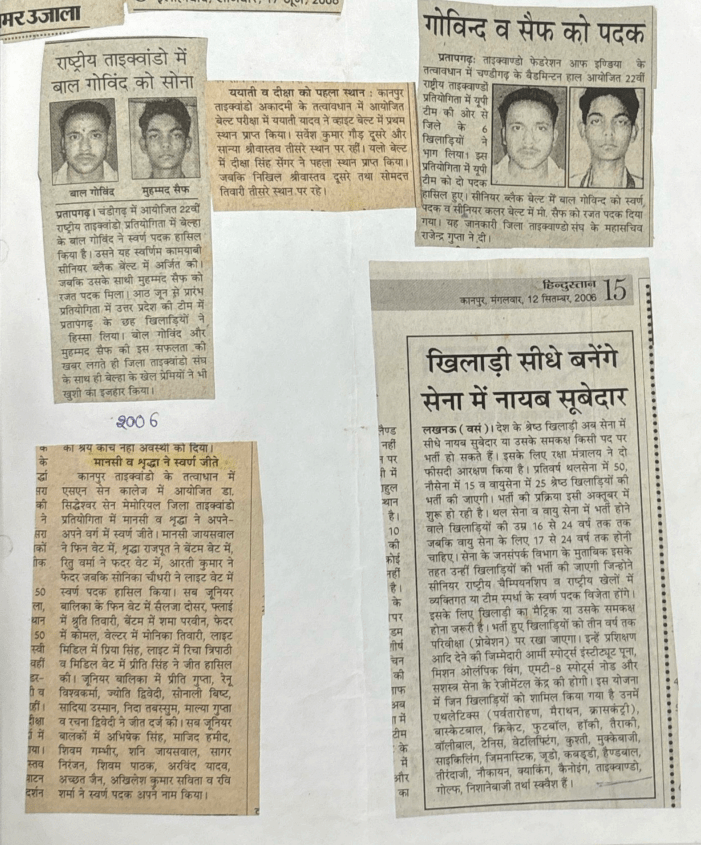 मर उजाला
इलाहाबाद, शनिवार, 17 जून, 2006
राष्ट्रीय ताइक्वांडो में
बाल गोविंद को सोना
बाल गोविंद मुहम्मद सैफ
प्रतापगढ़। चंडीगढ़ में आयोजित 22वीं
राष्ट्रीय ताइक्वांडो प्रतियोगिता में बेल्हा
के बाल गोविंद ने स्वर्ण पदक हासिल
किया है। उसने यह स्वर्णिम कामयाबी
सीनियर ब्लैक बेल्ट में अर्जित की।
जबकि उसके साथी मुहम्मद सैफ को
रजत पदक मिला। आठ जून से प्रारंभ
प्रतियोगिता में उत्तर प्रदेश की टीम में
प्रतापगढ़ के छह खिलाड़ियों ने
हिस्सा लिया। बाल गोविंद और
मुहम्मद सैफ की इस सफलता की
खबर लगते ही जिला ताइक्वांडो संघ
के साथ ही बेल्हा के खेल प्रेमियों ने भी
खुशी का इजहार किया।
2006
ययाती व दीक्षा को पहला स्थान : कानपुर
ताइक्वांडो अकादमी के तत्वावधान में आयोजित
बेल्ट परीक्षा में ययाती यादव ने व्हाइट बेल्ट में प्रथम
स्थान प्राप्त किया। सर्वेश कुमार गौड़ दूसरे और
सान्या श्रीवास्तव तीसरे स्थान पर रहीं। यलो बेल्ट
में दीक्षा सिंह सेंगर ने पहला स्थान प्राप्त किया।
जबकि निखिल श्रीवास्तव दूसरे तथा सोमदत्त
तिवारी तीसरे स्थान पर रहे।
गोविन्द व सैफ को पदक
प्रतापगढ़: ताइक्वाण्डो फेडरेशन आफ इण्डिया के
तत्वावधान में चण्डीगढ़ के बैडमिन्टन हाल आयोजित 22वीं
राष्ट्रीय ताइक्वाण्डो
प्रतियोगिता में यूपी
टीम की ओर से
जिले के 6
खिलाड़ियों ने
भाग लिया। इस
प्रतियोगिता में यूपी
टीम को दो पदक
हासिल हुए। सीनियर ब्लैक बेल्ट में बाल गोविन्द को स्वर्ण
पदक व सीनियर कलर बेल्ट में मो. सैफ को रजत पदक दिया
गया। यह जानकारी जिला ताइक्वाण्डो संघ के महासचिव
राजेन्द्र गुप्ता ने दी।
को श्रेय कोच नेहा अवस्थी को दिया।
मानसी व श्रृद्धा ने स्वर्ण जीते
कानपुर ताइक्वांडो के तत्वाधान में
एसएन सेन कालेज में आयोजित डा.
सिद्धेश्वर सेन मेमोरियल जिला ताइक्वांडो
प्रतियोगिता में मानसी व श्रृद्धा ने अपने-
अपने वर्ग में स्वर्ण जीते। मानसी जायसवाल
ने फिन वेट में, श्रृद्धा राजपूत ने बेंटम वेट में,
रितु वर्मा ने फदर वेट में, आरती कुमार ने
फेदर जबकि सोनिका चौधरी ने लाइट वेट में
स्वर्ण पदक हासिल किया। सब जूनियर
बालिका के फिन वेट में सैलजा दोसर, फ्लाई
में श्रुति तिवारी, बेंटम में शमा परवीन, फेदर
में कोमल, वेल्टर में मोनिका तिवारी, लाइट
मिडिल में प्रिया सिंह, लाइट में रिचा त्रिपाठी
व मिडिल वेट में प्रीति सिंह ने जीत हासिल
की। जूनियर बालिका में प्रीति गुप्ता, रेनू
विश्वकर्मा, ज्योति द्विवेदी, सोनाली बिष्ट,
सादिया उस्मान, निदा तबस्सुम, माल्या गुप्ता
व रचना द्विवेदी ने जीत दर्ज की। सब जूनियर
बालकों में अभिषेक सिंह, माजिद हमीद,
शिवम गम्भीर, शनि जायसवाल, सागर
निरंजन, शिवम पाठक, अरविंद यादव,
अच्छत जैन, अखिलेश कुमार सविता व रवि
शर्मा ने स्वर्ण पदक अपने नाम किया।
हिन्दुस्तान 15
कानपुर, मंगलबार, 12 सितम्बर, 2006
खिलाड़ी सीधे बनेंगे
सेना में नायब सूबेदार
लखनऊ (वसं)। देश के श्रेष्ठ खिलाड़ी अब सेना में
सीधे नायब सूबेदार या उसके समकक्ष किसी पद पर
भर्ती हो सकते हैं। इसके लिए रक्षा मंत्रालय ने दो
फीसदी आरक्षण किया है। प्रतिवर्ष थलसेना में 50,
नौसेना में 15 व वायुसेना में 25 श्रेष्ठ खिलाड़ियों की
भर्ती की जाएगी। भर्ती की प्रक्रिया इसी अक्तूबर में
शुरू हो रही है। थल सेना व वायु सेना में भर्ती होने
वाले खिलाड़ियों की उम्र 16 से 24 वर्ष तक तक
जबकि वायु सेना के लिए 17 से 24 वर्ष तक होनी
चाहिए। सेना के जनसंपर्क विभाग के मुताबिक इसके
तहत उन्हीं खिलाड़ियों की भर्ती की जाएगी जिन्होने
सीनियर राष्ट्रीय चैम्पियनशिप व राष्ट्रीय खेलों में
व्यक्तिगत या टीम स्पर्धा के स्वर्ण पदक विजेता होंगे।
इसके लिए खिलाड़ी का मैट्रिक या उसके समकक्ष
होना जरूरी है। भर्ती हुए खिलाड़ियों को तीन वर्ष तक
परिवीक्षा (प्रोबेशन) पर रखा जाएगा। इन्हें प्रशिक्षण
आदि देने की जिम्मेदारी आर्मी स्पोर्ट्स इंस्टीट्यूट पूना,
मिशन ओलंपिक विंग, एमटी-8 स्पोर्ट्स नोड और
सशस्त्र सेना के रेजीमेंटल केंद्र की होगी। इस योजना
में जिन खिलाड़ियों को शामिल किया गया है उनमें
एथलेटिक्स (पर्वतारोहण, मैराथन, क्रासकंट्री),
बास्केटबाल, क्रिकेट, फुटबॉल, हॉकी, तैराकी,
वॉलीबाल, टेनिस, वेटलिफ्टिंग, कुश्ती, मुक्केबाजी,
साइकिलिंग, जिमनास्टिक, जूडो, कबड्डी, हैण्डबाल,
तीरंदाजी, नौकायन, क्याकिंग, कैनोइंग, ताइक्वाण्डो,
गोल्फ, निशानेबाजी तथा स्क्वैश हैं।